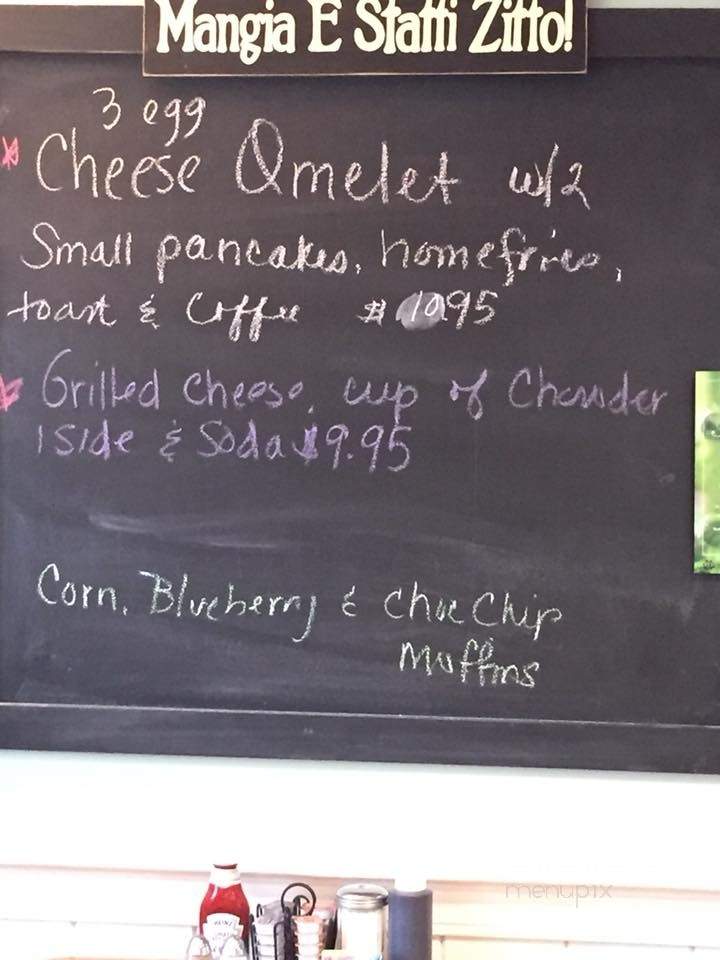 Mangia E Statti Zitto!
3 egg
Cheese Omelet w/2
Small pancakes, homefries,
toast & Coffee $10.95
Grilled Cheese, cup of Chowder
1 side & Soda $9.95
Corn, Blueberry & Choc Chip
Muffins
HEINZ
menupix